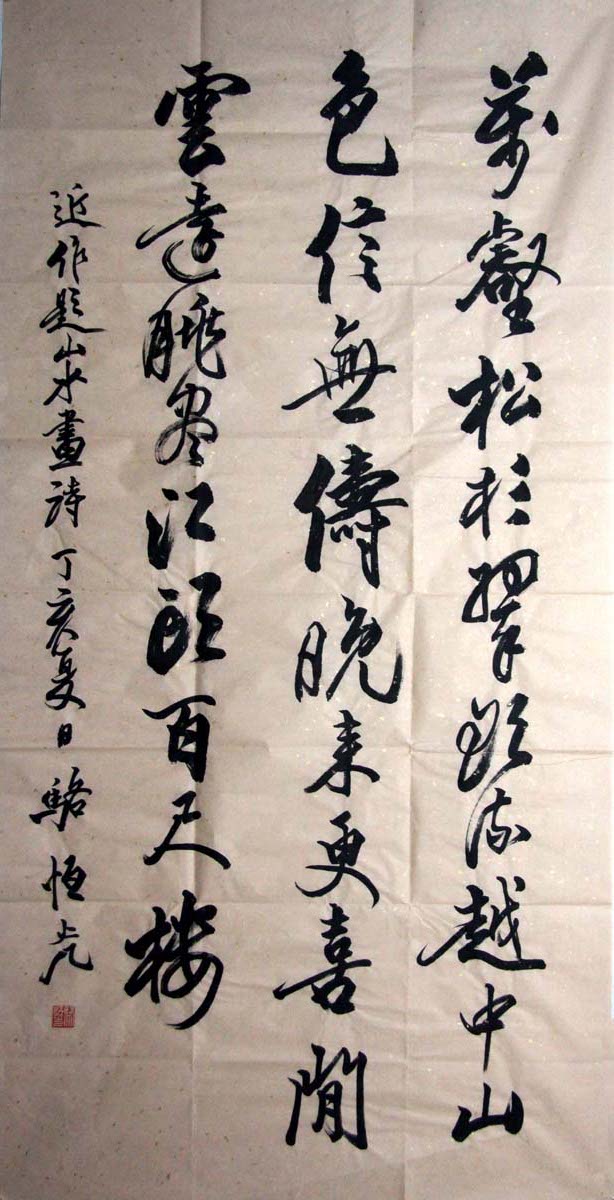 萬壑松杉翠欲流越中山
色信無儔晚來更喜閒
雲遠眺盡江頭百尺樓
近作題山水畫詩丁亥夏日駱恒光